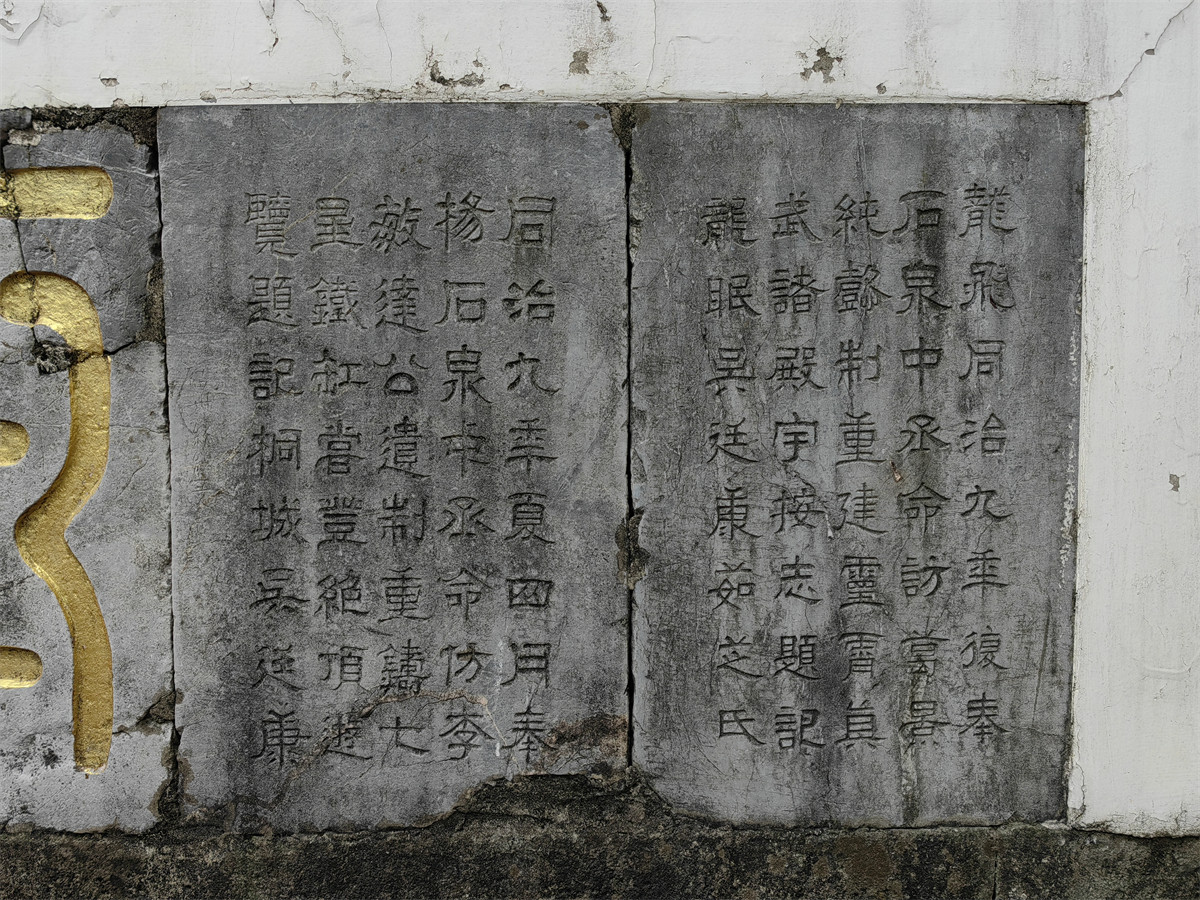 龍飛同治九年復奉
石泉中丞命訪景
純懿制重建靈霄真
武諸殿宇按志題記
龍眠吳廷康茹芝氏
同治九年夏四月奉
揚石泉中丞命仿李
敏達公遺制重鑄七
星鐵缸嘗登絕頂遊
覽題記桐城吳廷康